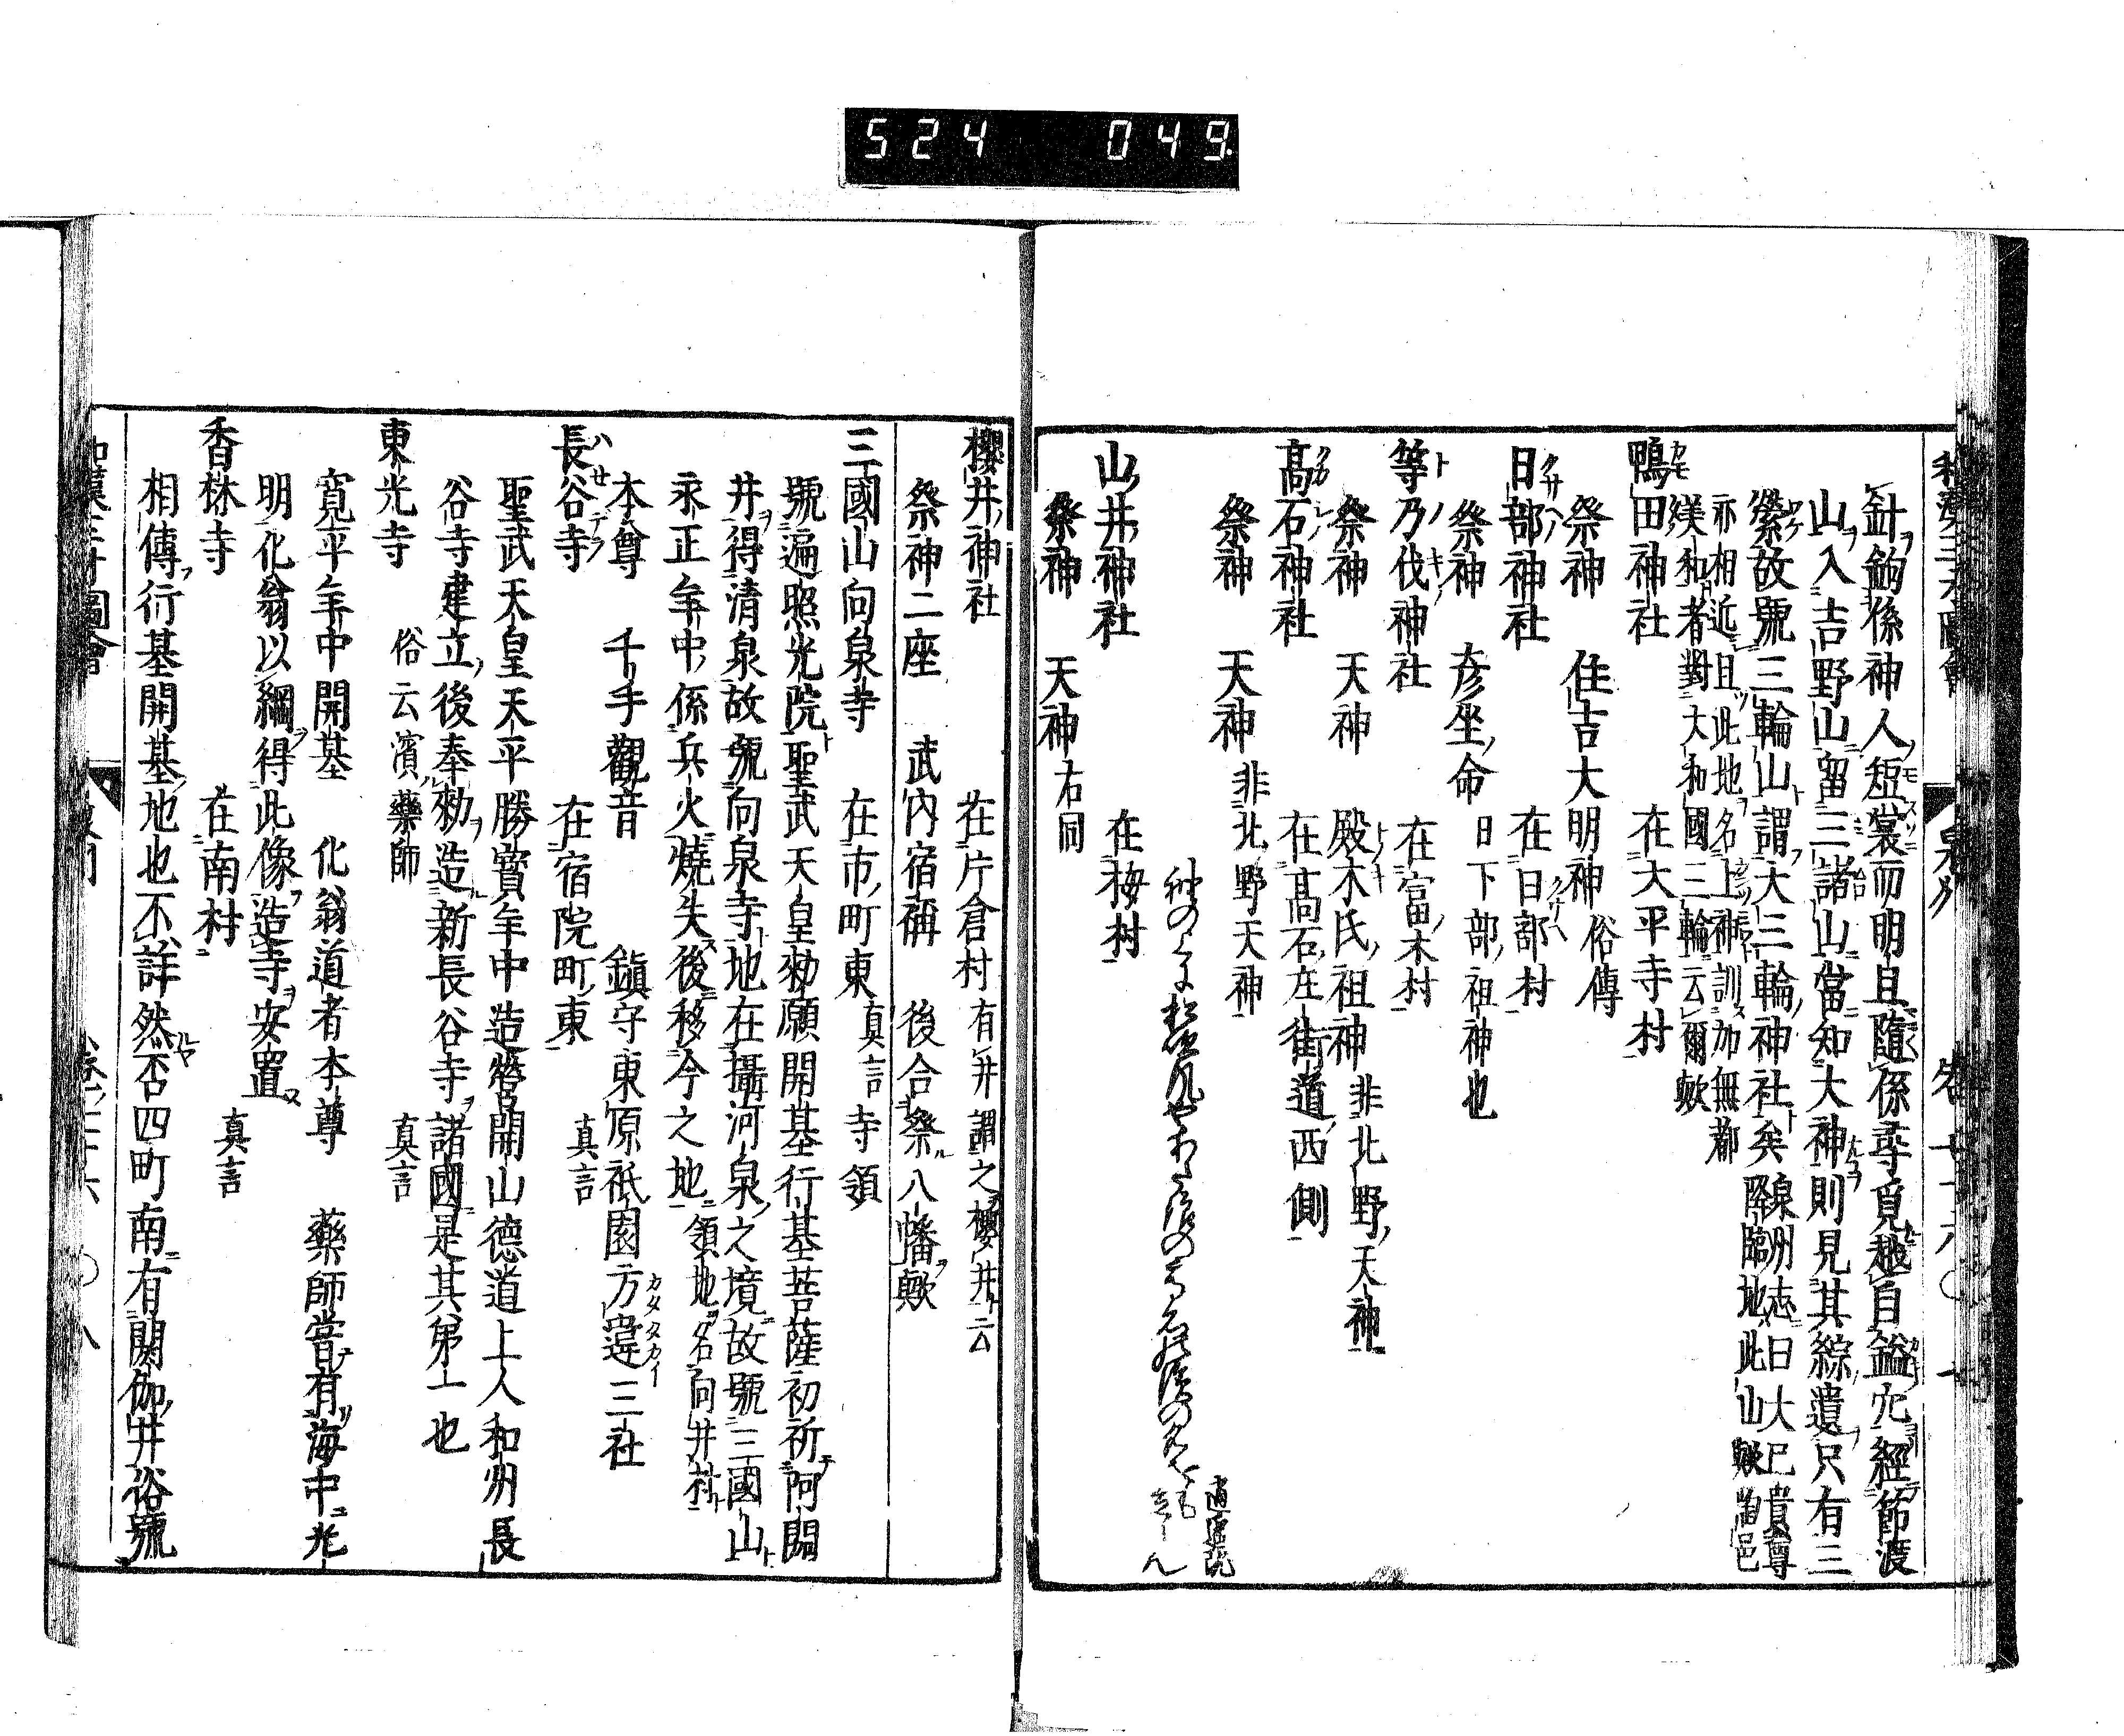 524 049
針鉤係神人短裳而明且隨係尋覓越自鎰穴經節渡
山入吉野山留三諸山當知大神則見其綜遺只有三
縈故號三輪山謂大三輪神社矣泉州志曰大已貴尊
降臨地此山歟陶邑
亦相近且此地名上神訓加無都
美和者對大和國三輪云爾歟
鴨田神社 在大平寺村
祭神 住吉大明神 俗傳
日部神社 在日部村
祭神 彦坐命 日下部祖神也
等乃伐神社 在富木村
祭神 天神 殿木氏祖神 非北野天神
高石神社 在高石庄街道西側
祭神 天神 非北野天神
逍遥院
山井神社 在梅村
祭神 天神 右同
櫻井神社 在片倉村 有井謂之櫻井云
祭神二座 武内宿禰 後合祭八幡歟
三國山向泉寺 在市町東 真言 寺領
號遍照光院聖武天皇勅願開基行基菩薩初祈阿閦
井得清泉故號向泉寺地在攝河泉之境故號三國山
永正年中係兵火燒失後移今之地 領地名向井村
本尊 千手觀音 鎮守東原祇園方違三社
長谷寺 在宿院町東 真言
聖武天皇天平勝寳年中造營開山德道上人和州長
谷寺建立後奉勅造新長谷寺諸國是其第一也
東光寺 俗云濱藥師 真言
寛平年中開基 化翁道者本尊 藥師當有海中光
明化翁以綱得此像造寺安置
香林寺 在南村 真言
相傳行基開基地也不詳然否四町南有閼伽井俗號